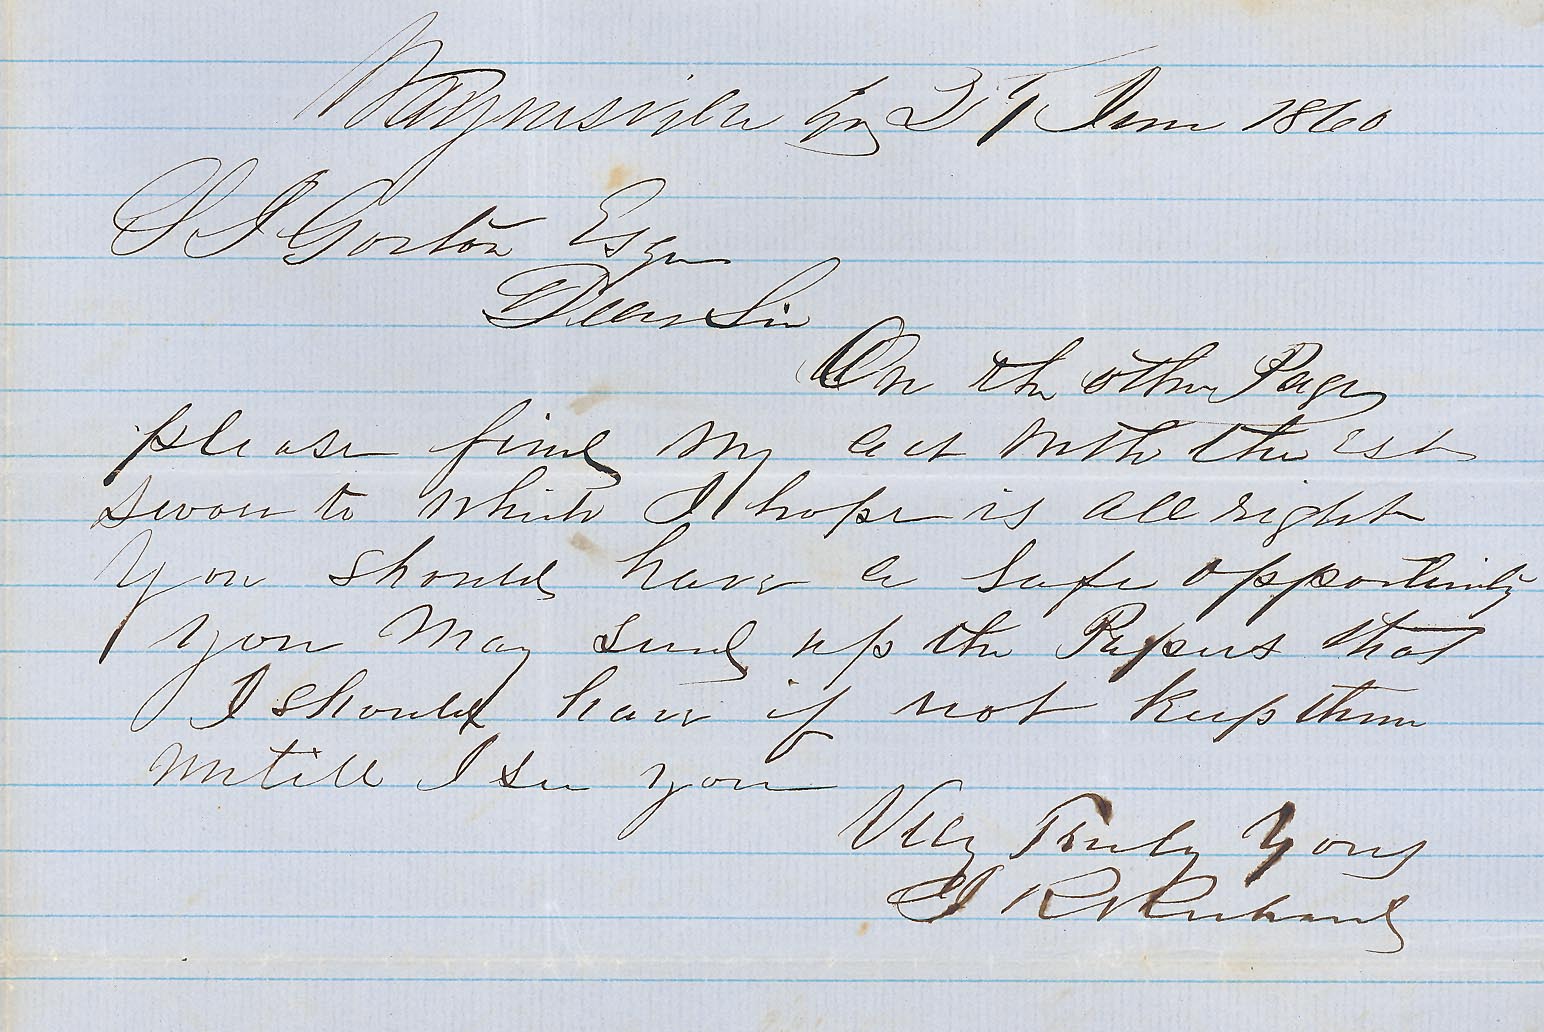 Waynesville Ga 27 June 1860
S J Gorton Esqr
Dear Sir
On the other Page
please find My act with the Est
sworn to which I hope is all right
You should have a safe opportunity
you May send up the Papers that
I should have if not keep them
untill I see you
Very Truly Yours
R Richard